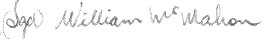 (Sgd) William McMahon